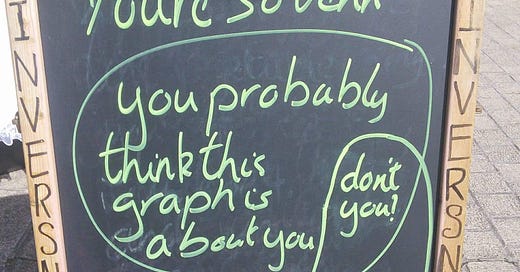 You're so venn
you probably
think this
graph is
about you
don't
you!
INVERSN
INVERSN